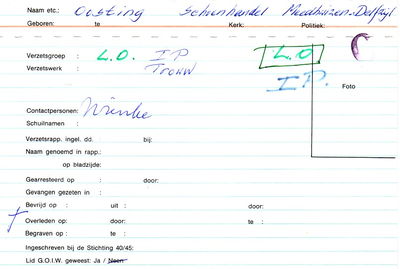 Naam etc.: Oosting Schoenhandel Meedhuizen-Delfzijl
Geboren: te Kerk: Politiek:
Verzetsgroep : L.O. I P L.O
Verzetswerk : Trouw I.P.
Foto
Contactpersonen: Nienke
Schuilnaam :
Verzetsrapp. ingel. dd. bij:
Naam genoemd in rapp.:
op bladzijde:
Gearresteerd op : door:
Gevangen gezeten in :
Bevrijd op : uit : door:
Overleden op: door: te :
Begraven op : te :
Ingeschreven bij de Stichting 40/45:
Lid G.O.I.W. geweest: Ja / Neen